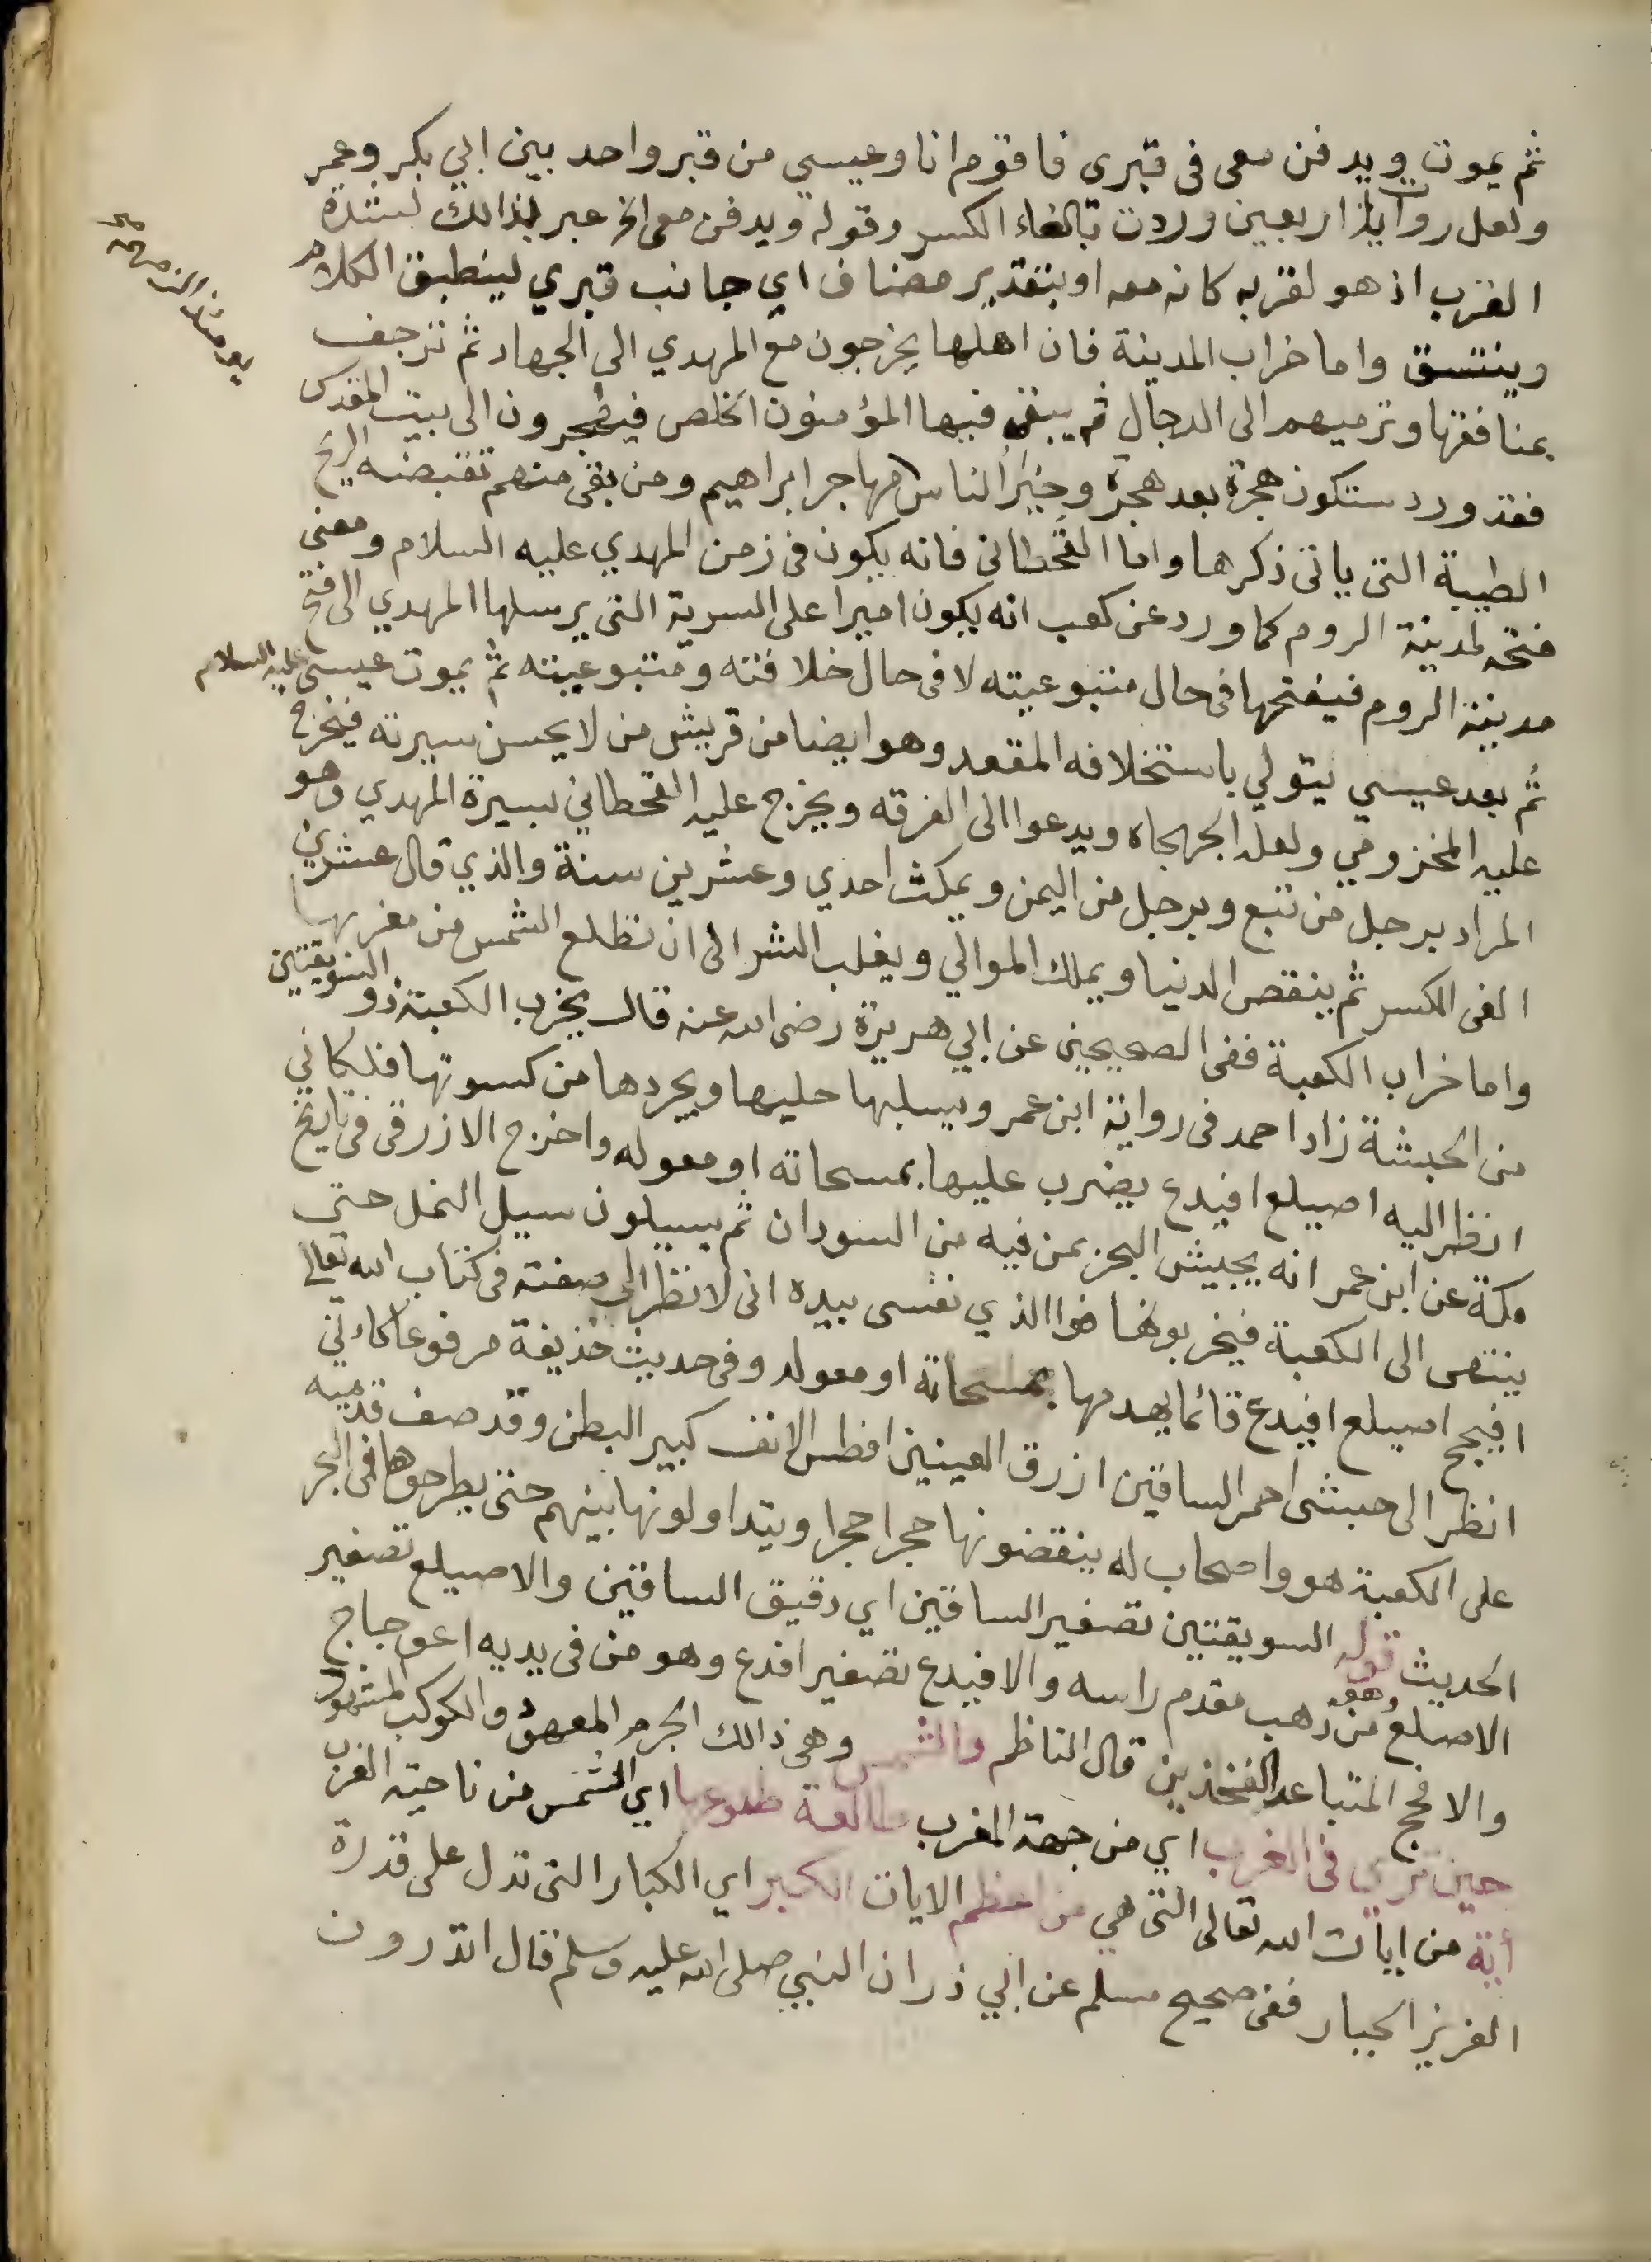 ثم يموت ويدفن معى فى قبرى فاقوم انا وعيسي من قبر واحد بين ابي بكر وعمر
ولعل روايات اربعين وردت بالغاء الكسر وقوله ويدفن معى الخ عبر بذالك لشدة
القرب اذ هو لقربه كانه معه او بتقدير مضاف اي جانب قبري لينطبق الكلام
وينتسق واما خراب المدينة فان اهلها يخرجون مع المهدي الى الجهاد ثم ترجف
بمنافقها وترميهم الى الدجال ثم يبقى فيها المؤمنون الخلص فيهجرون الى بيت المقدس
يومئذ
فقد ورد ستكون هجرة بعد هجرة وخير الناس مهاجر ابراهيم ومن بقى منهم تقبضه الريح
الطيبة التى ياتى ذكرها واما القحطانى فانه يكون فى زمن المهدي عليه السلام ومعنى
فتحه لمدينة الروم كما ورد عن كعب انه يكون اميرا على السرية التى يرسلها المهدي الى فتح
مدينة الروم فيفتحها فى حال متبوعيته لا فى حال خلافته ومتبوعيته ثم يموت عيسى عليه السلام
ثم بعد عيسي يتولي باستخلافه المقعد وهو ايضا من قريش من لا يحسن سيرته فيخرج
عليه المخزومي ولعله الجهجاه ويدعوا الى الفرقه ويخرج عليه القحطاني بسيرة المهدي وهو
المراد برجل من تبع وبرجل من اليمن ويمكث احدي وعشرين سنة والذي قال عشرين
الغى الكسر ثم ينقص الدنيا ويملك الموالي ويغلب الشر الى ان تطلع الشمس من مغربها
واما خراب الكعبة ففى الصحيحين عن ابي هريرة رضى الله عنه قال يخرب الكعبة ذو السويقتين
من الحبشة زاد احمد فى رواية ابن عمر ويسلبها حليها ويجردها من كسوتها فلكاني
انظر اليه اصيلع افيدع يضرب عليها بمسحاته او معوله واخرج الازرقى فى تاريخ
مكة عن ابن عمر انه يجيش البحر بمن فيه من السودان ثم يسيلون سيل النمل حتى
ينتهى الى الكعبة فيخربونها فوا الذي نفسى بيده انى لانظر الى صفته فى كتاب الله تعالى
افيحج اصيلع افيدع قائما يهدمها بمسحاته او معوله وفى حديث حذيفة مرفوعا كاءني
انظر الى حبشى احمر الساقين ازرق العينين افطس الانف كبير البطن وقد صف قدميه
على الكعبة هو واصحاب له ينقضونها حجرا حجرا ويتداولونها بينهم حتى يطرحوها فى البحر
الحديث قوله السويقتين تصغير الساقين اي دقيق الساقين والاصيلع تصغير
الاصلع وهو من ذهب مقدم راسه والافيدع تصغير افدع وهو من فى يديه اعوجاج
والافحج المتباعد الفخذين قال الناظم والشمس وهى ذالك الجرم المعهود والكوكب المشهور
حين ترى فى الغرب اي من جهة المغرب طالعة طلوعها اي الشمس من ناحية الغرب
أية من ايات الله تعالى التى هي من اعظم الايات الكبر اي الكبار التى تدل على قدرة
العزيز الجبار ففى صحيح مسلم عن ابي ذر ان النبي صلى الله عليه وسلم قال اتدرون